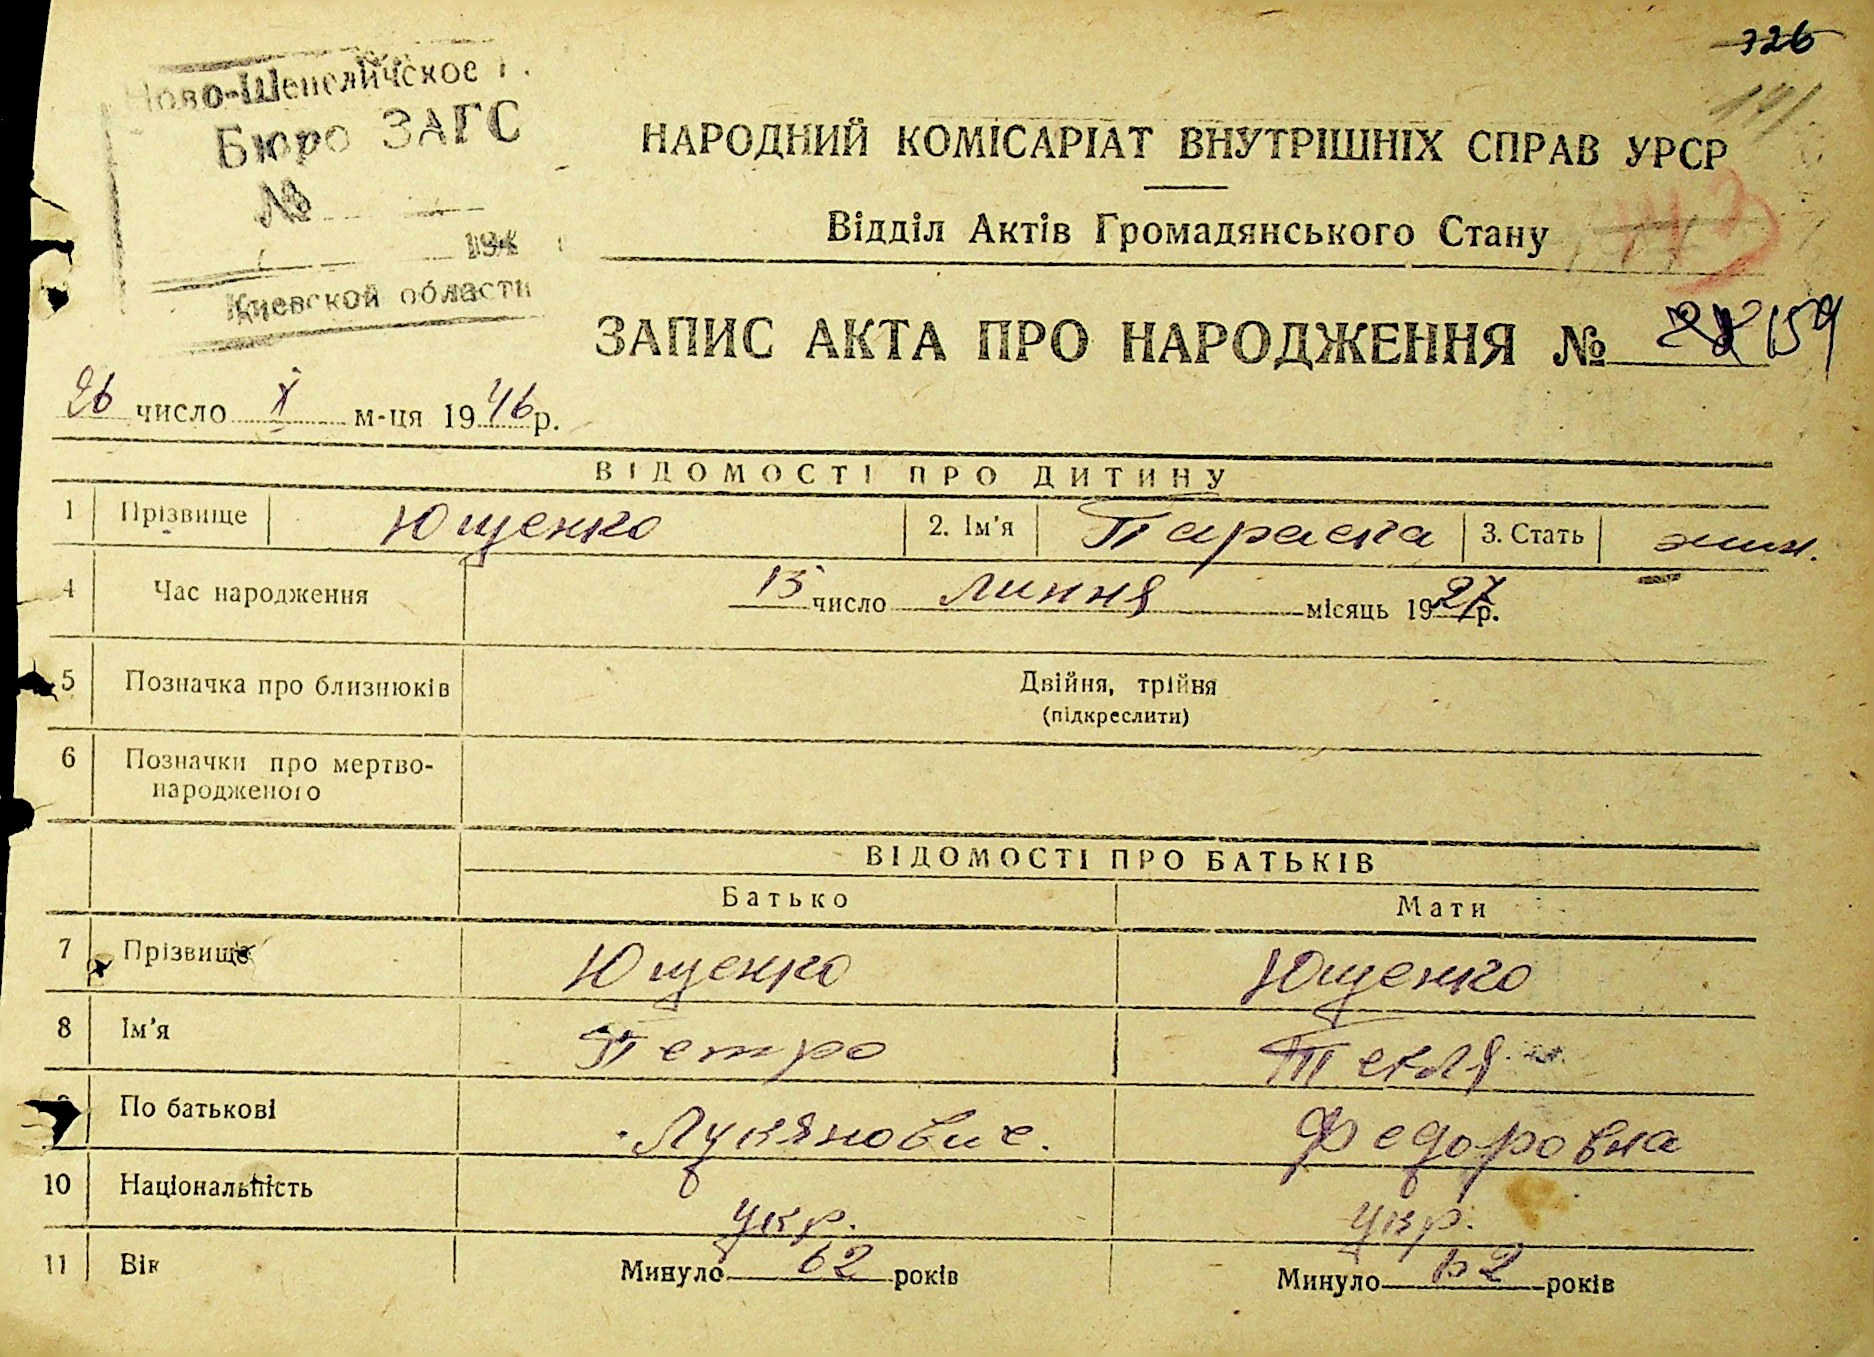 326
Ново-Шепеличское
Бюро ЗАГС
№
194
Киевской области
НАРОДНИЙ КОМІСАРІАТ ВНУТРІШНІХ СПРАВ УРСР
Відділ Актів Громадянського Стану
ЗАПИС АКТА ПРО НАРОДЖЕННЯ № 159
26 число X м-ця 1946 р.
ВІДОМОСТІ ПРО ДИТИНУ
1 Прізвище Ющенко 2. Ім'я Параска 3. Стать жин.
4 Час народження 15 число липня місяць 1927р.
5 Позначка про близнюків Двійня, трійня
(підкреслити)
6 Позначки про мертво-
народженого
ВІДОМОСТІ ПРО БАТЬКІВ
Батько Мати
7 Прізвище Ющенко Ющенко
8 Ім'я Петро Текля
9 По батькові Лукянович. Федоровна
10 Національність укр. укр.
11 Вік Минуло 62 років Минуло 62 років